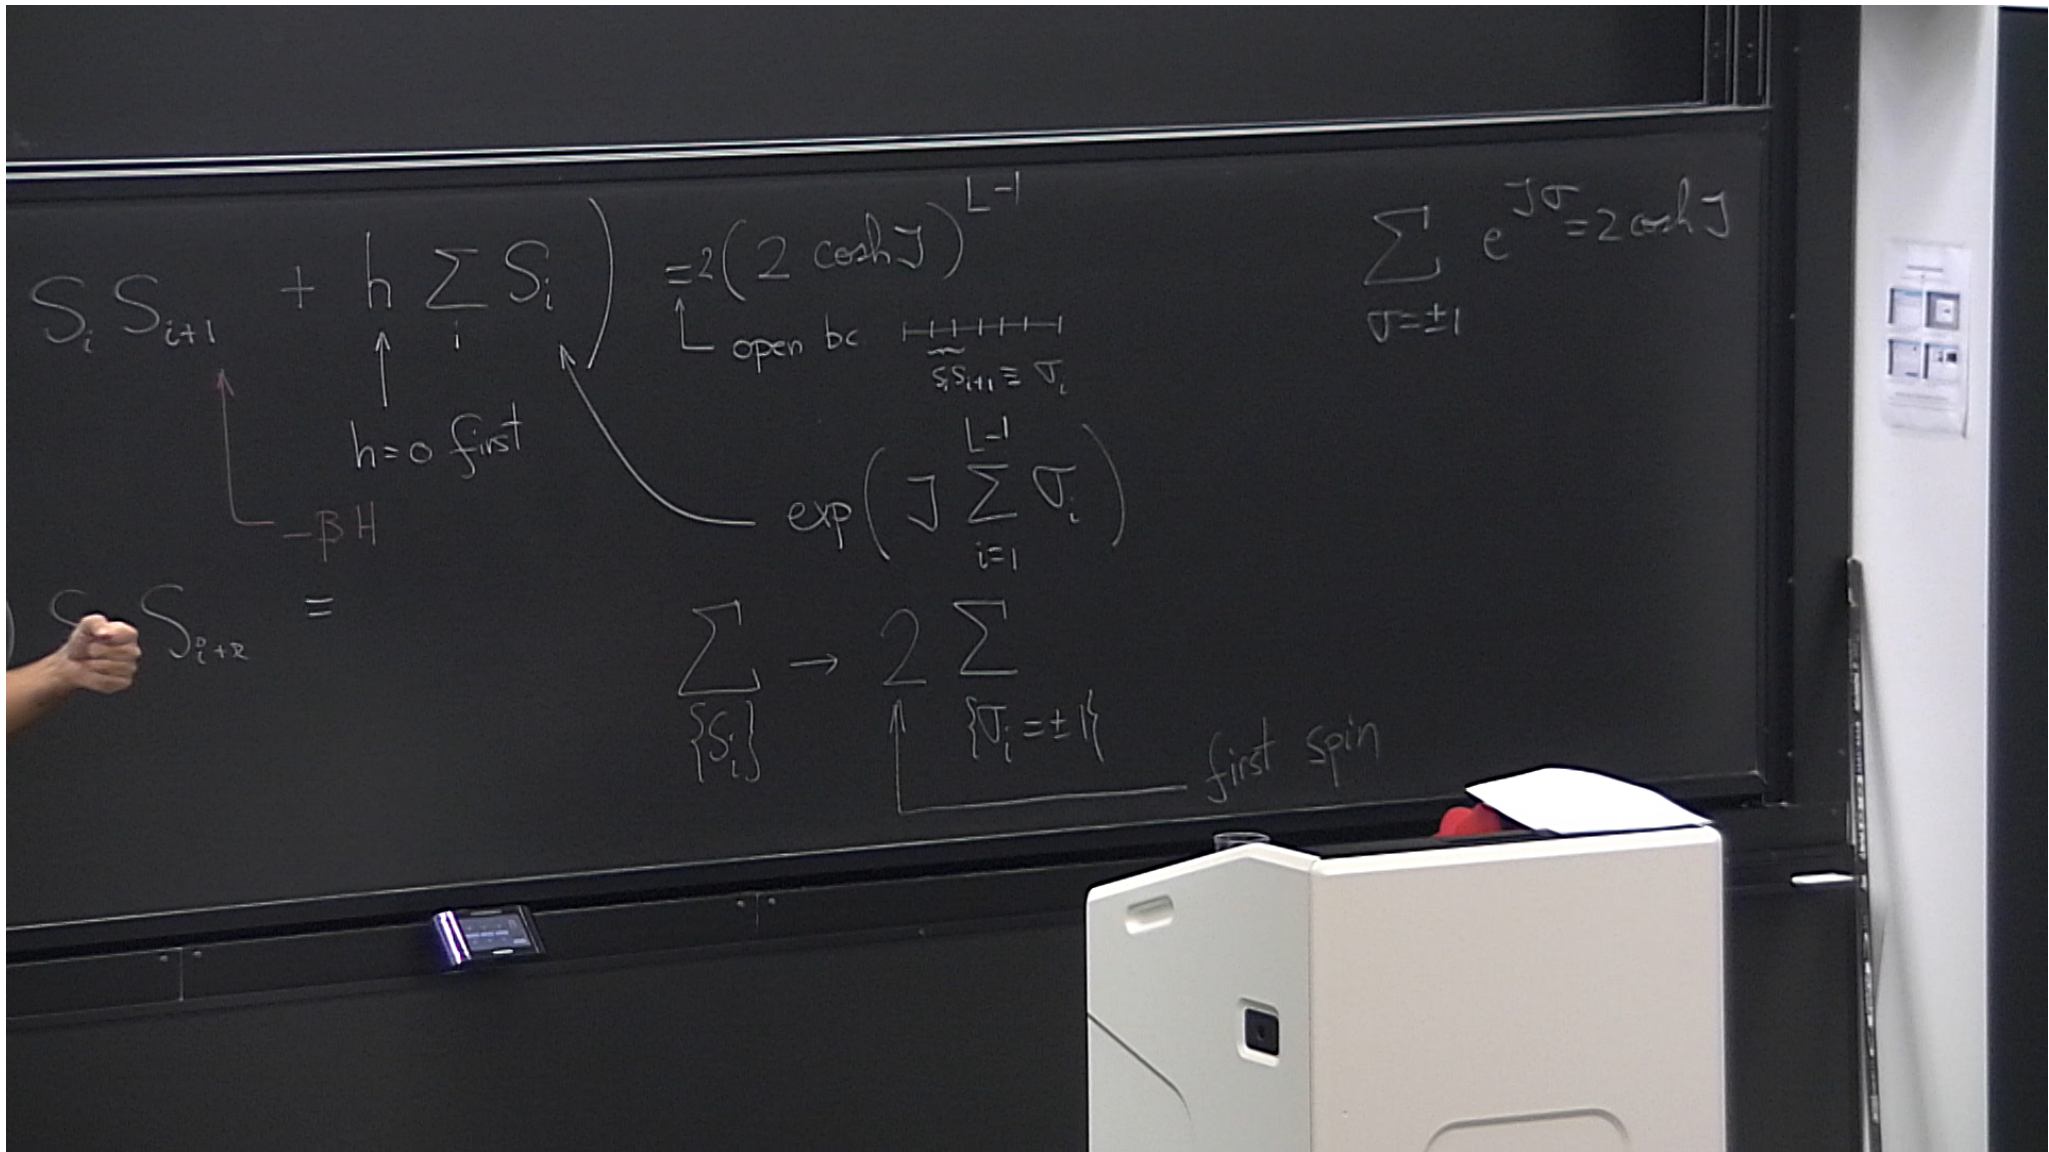 S_i S_{i+1} + h ∑_i S_i ) = 2 ( 2 cosh J )^{L-1}
∑_{σ=±1} e^{Jσ} = 2 cosh J
open bc
S_i S_{i+1} ≡ σ_i
h=0 first
-βH
exp( J ∑_{i=1}^{L-1} σ_i )
S_{i+r} =
∑_{{S_i}} → 2 ∑_{{σ_i = ±1}}
first spin